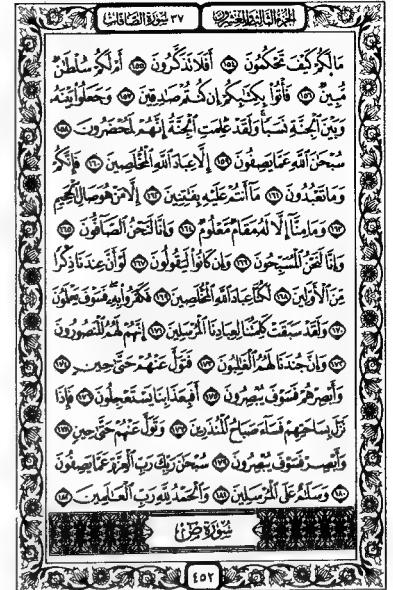 الجزء الثالث والعشرون ٣٧ سورة الصافات
مَا لَكُمْ كَيْفَ تَحْكُمُونَ ١٥٤ أَفَلَا تَذَكَّرُونَ ١٥٥ أَمْ لَكُمْ سُلْطَٰنٌ
مُّبِينٌ ١٥٦ فَأْتُوا۟ بِكِتَٰبِكُمْ إِن كُنتُمْ صَٰدِقِينَ ١٥٧ وَجَعَلُوا۟ بَيْنَهُۥ
وَبَيْنَ ٱلْجِنَّةِ نَسَبًا ۚ وَلَقَدْ عَلِمَتِ ٱلْجِنَّةُ إِنَّهُمْ لَمُحْضَرُونَ ١٥٨
سُبْحَٰنَ ٱللَّهِ عَمَّا يَصِفُونَ ١٥٩ إِلَّا عِبَادَ ٱللَّهِ ٱلْمُخْلَصِينَ ١٦٠ فَإِنَّكُمْ
وَمَا تَعْبُدُونَ ١٦١ مَآ أَنتُمْ عَلَيْهِ بِفَٰتِنِينَ ١٦٢ إِلَّا مَنْ هُوَ صَالِ ٱلْجَحِيمِ
١٦٣ وَمَا مِنَّآ إِلَّا لَهُۥ مَقَامٌ مَّعْلُومٌ ١٦٤ وَإِنَّا لَنَحْنُ ٱلصَّآفُّونَ ١٦٥
وَإِنَّا لَنَحْنُ ٱلْمُسَبِّحُونَ ١٦٦ وَإِن كَانُوا۟ لَيَقُولُونَ ١٦٧ لَوْ أَنَّ عِندَنَا ذِكْرًا
مِّنَ ٱلْأَوَّلِينَ ١٦٨ لَكُنَّا عِبَادَ ٱللَّهِ ٱلْمُخْلَصِينَ ١٦٩ فَكَفَرُوا۟ بِهِۦ فَسَوْفَ يَعْلَمُونَ
١٧٠ وَلَقَدْ سَبَقَتْ كَلِمَتُنَا لِعِبَادِنَا ٱلْمُرْسَلِينَ ١٧١ إِنَّهُمْ لَهُمُ ٱلْمَنصُورُونَ
١٧٢ وَإِنَّ جُندَنَا لَهُمُ ٱلْغَٰلِبُونَ ١٧٣ فَتَوَلَّ عَنْهُمْ حَتَّىٰ حِينٍ ١٧٤
وَأَبْصِرْهُمْ فَسَوْفَ يُبْصِرُونَ ١٧٥ أَفَبِعَذَابِنَا يَسْتَعْجِلُونَ ١٧٦ فَإِذَا
نَزَلَ بِسَاحَتِهِمْ فَسَآءَ صَبَاحُ ٱلْمُنذَرِينَ ١٧٧ وَتَوَلَّ عَنْهُمْ حَتَّىٰ حِينٍ ١٧٨
وَأَبْصِرْ فَسَوْفَ يُبْصِرُونَ ١٧٩ سُبْحَٰنَ رَبِّكَ رَبِّ ٱلْعِزَّةِ عَمَّا يَصِفُونَ
١٨٠ وَسَلَٰمٌ عَلَى ٱلْمُرْسَلِينَ ١٨١ وَٱلْحَمْدُ لِلَّهِ رَبِّ ٱلْعَٰلَمِينَ ١٨٢
سُورَةُ صٓ
٤٥٢